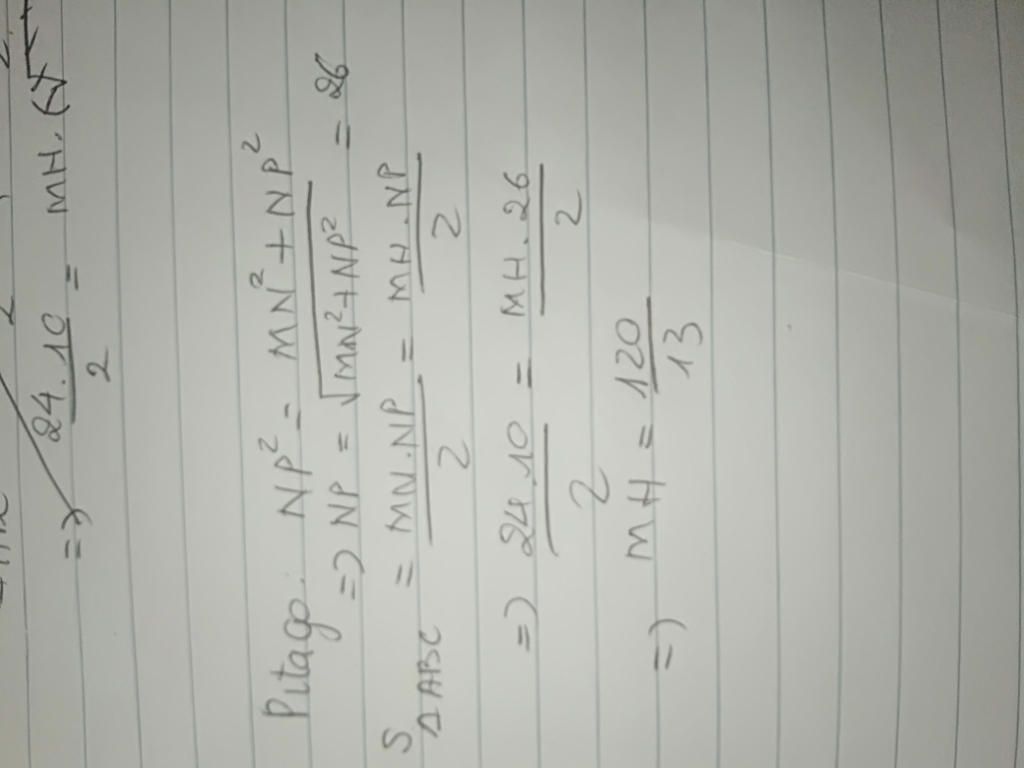 => 24.10/2 = MH.
Pitago: NP² = MN² + NP²
=> NP = √MN²+NP² = 26
S ΔABC = MN.NP/2 = MH.NP/2
=> 24.10/2 = MH.26/2
=> MH = 120/13